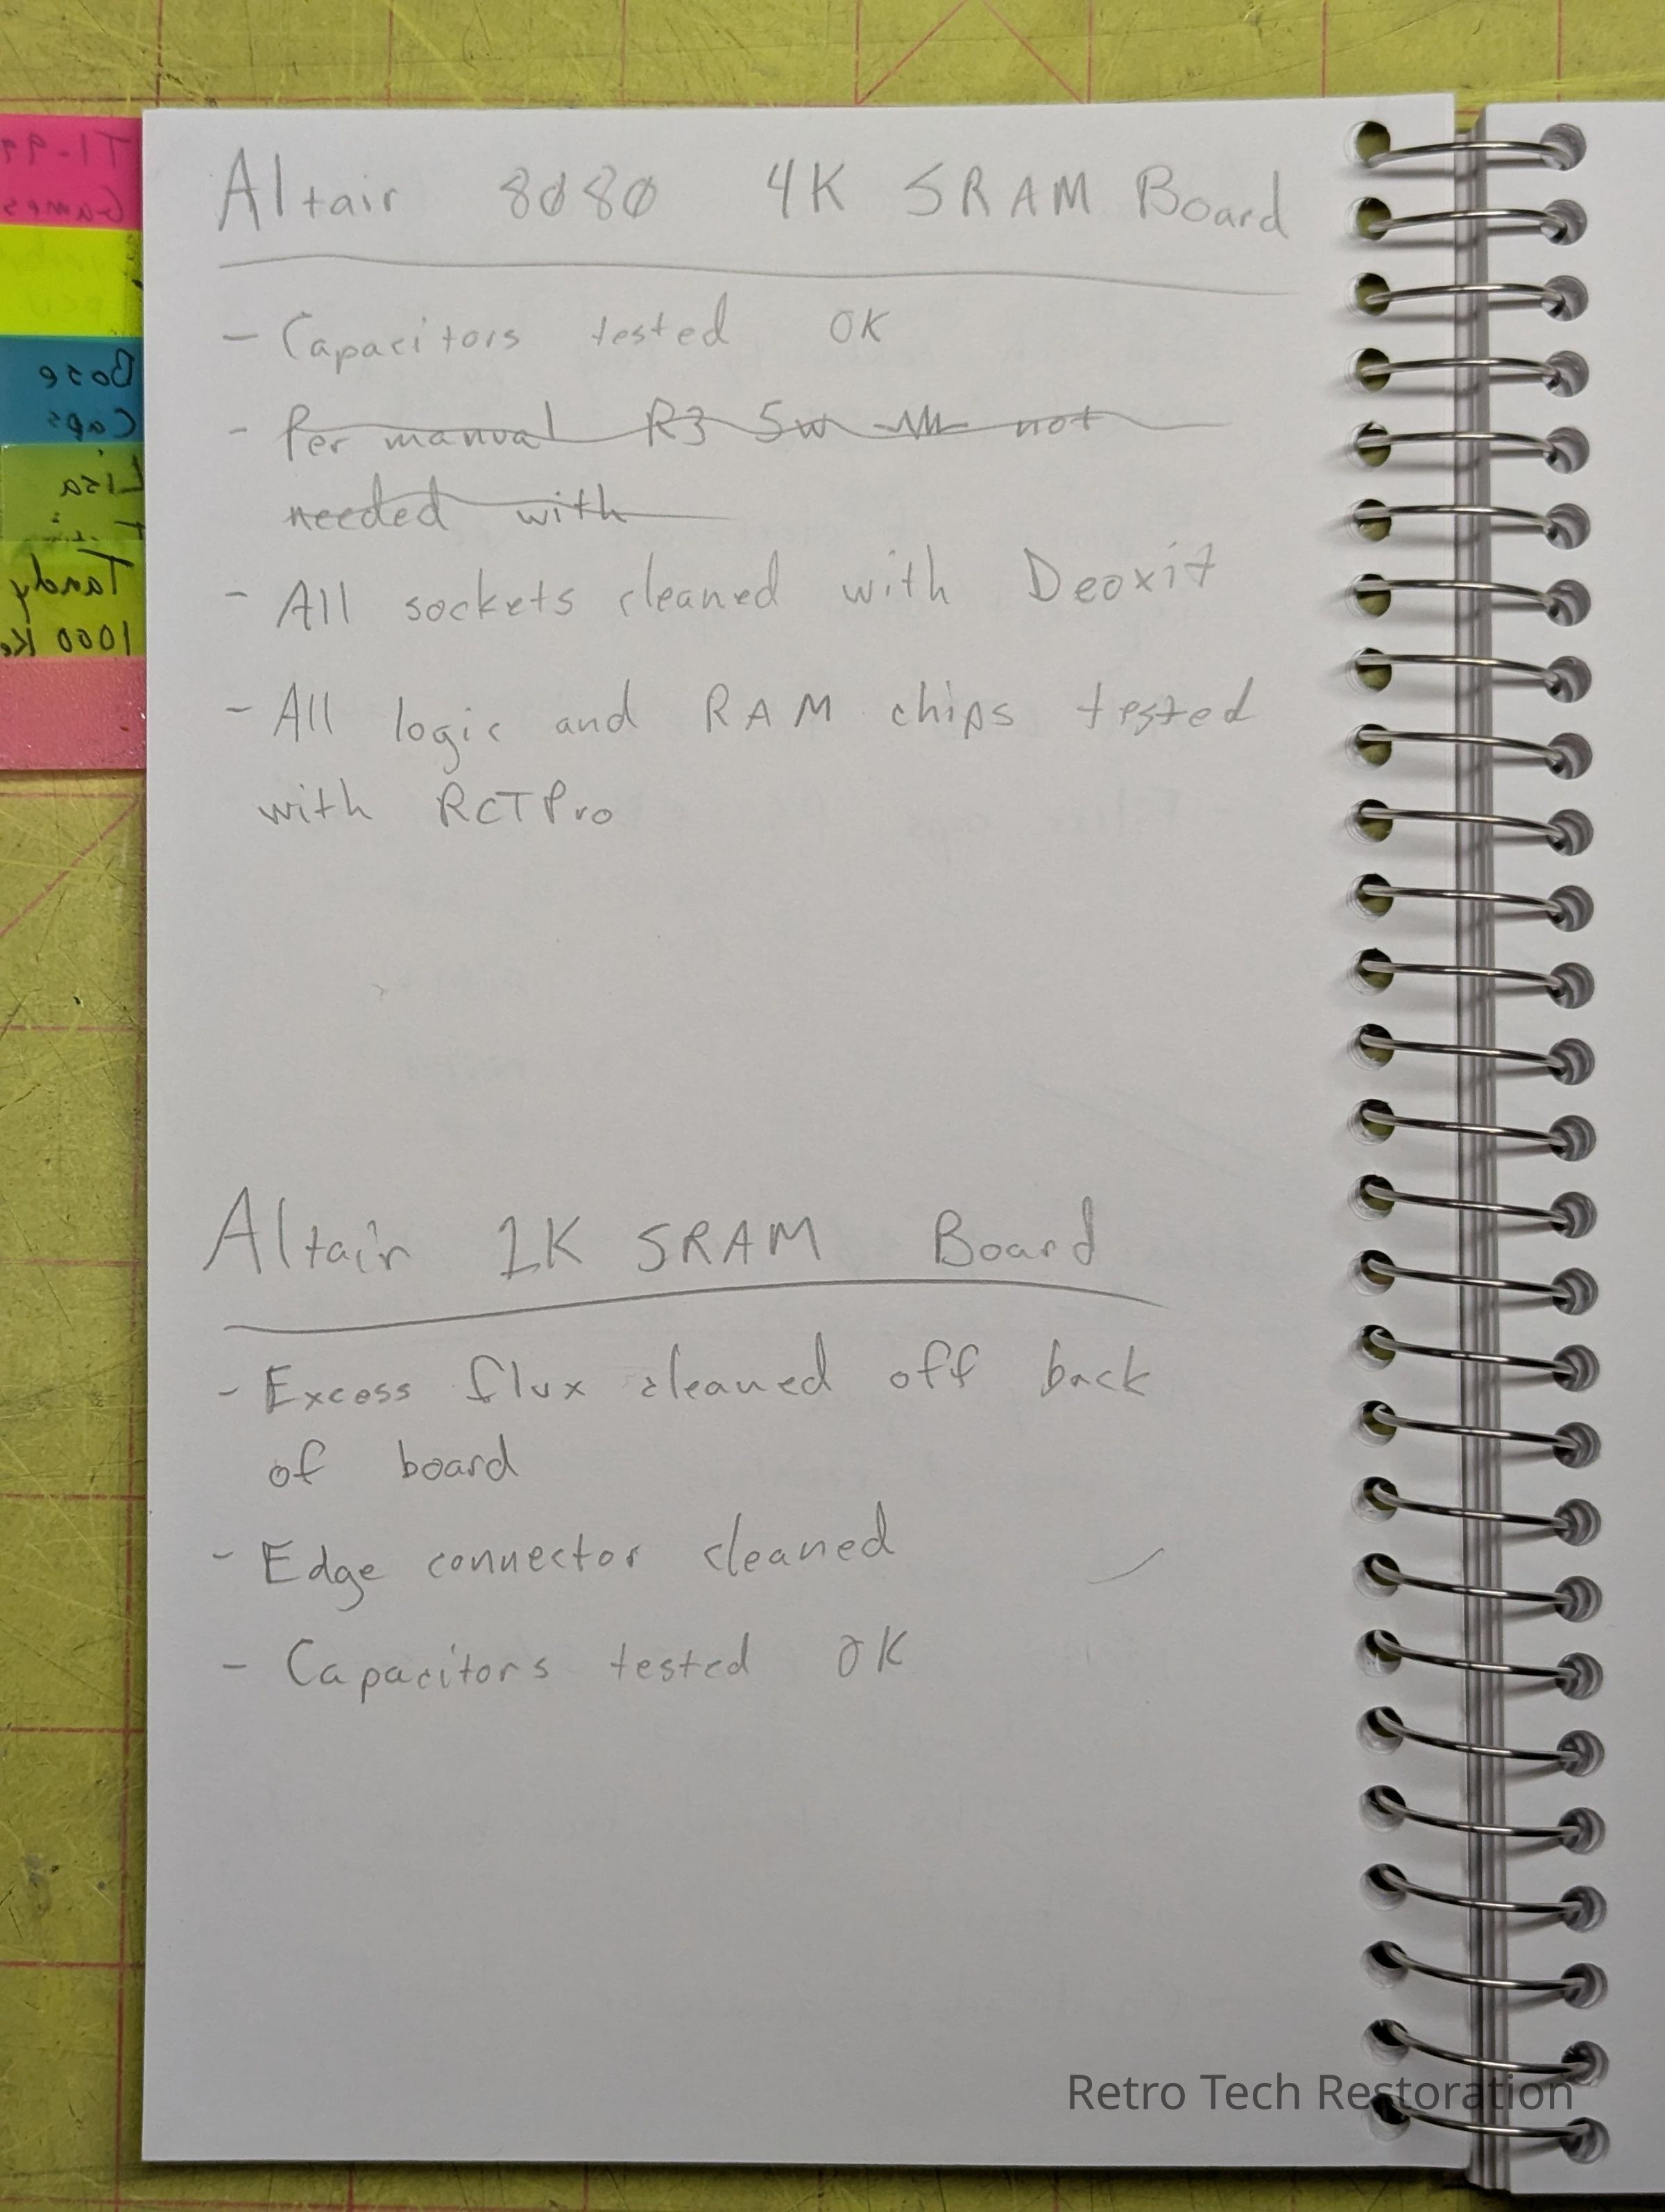 Altair 8080 4K SRAM Board
- Capacitors tested OK
- Per manual R3 5w not
needed with
- All sockets cleaned with Deoxit
- All logic and RAM chips tested
with RCTPro
Altair 1K SRAM Board
- Excess flux cleaned off back
of board
- Edge connector cleaned
- Capacitors tested OK
TI-99
Games
Bose
Caps
Lisa
Tandy
1000 Ke
Retro Tech Restoration